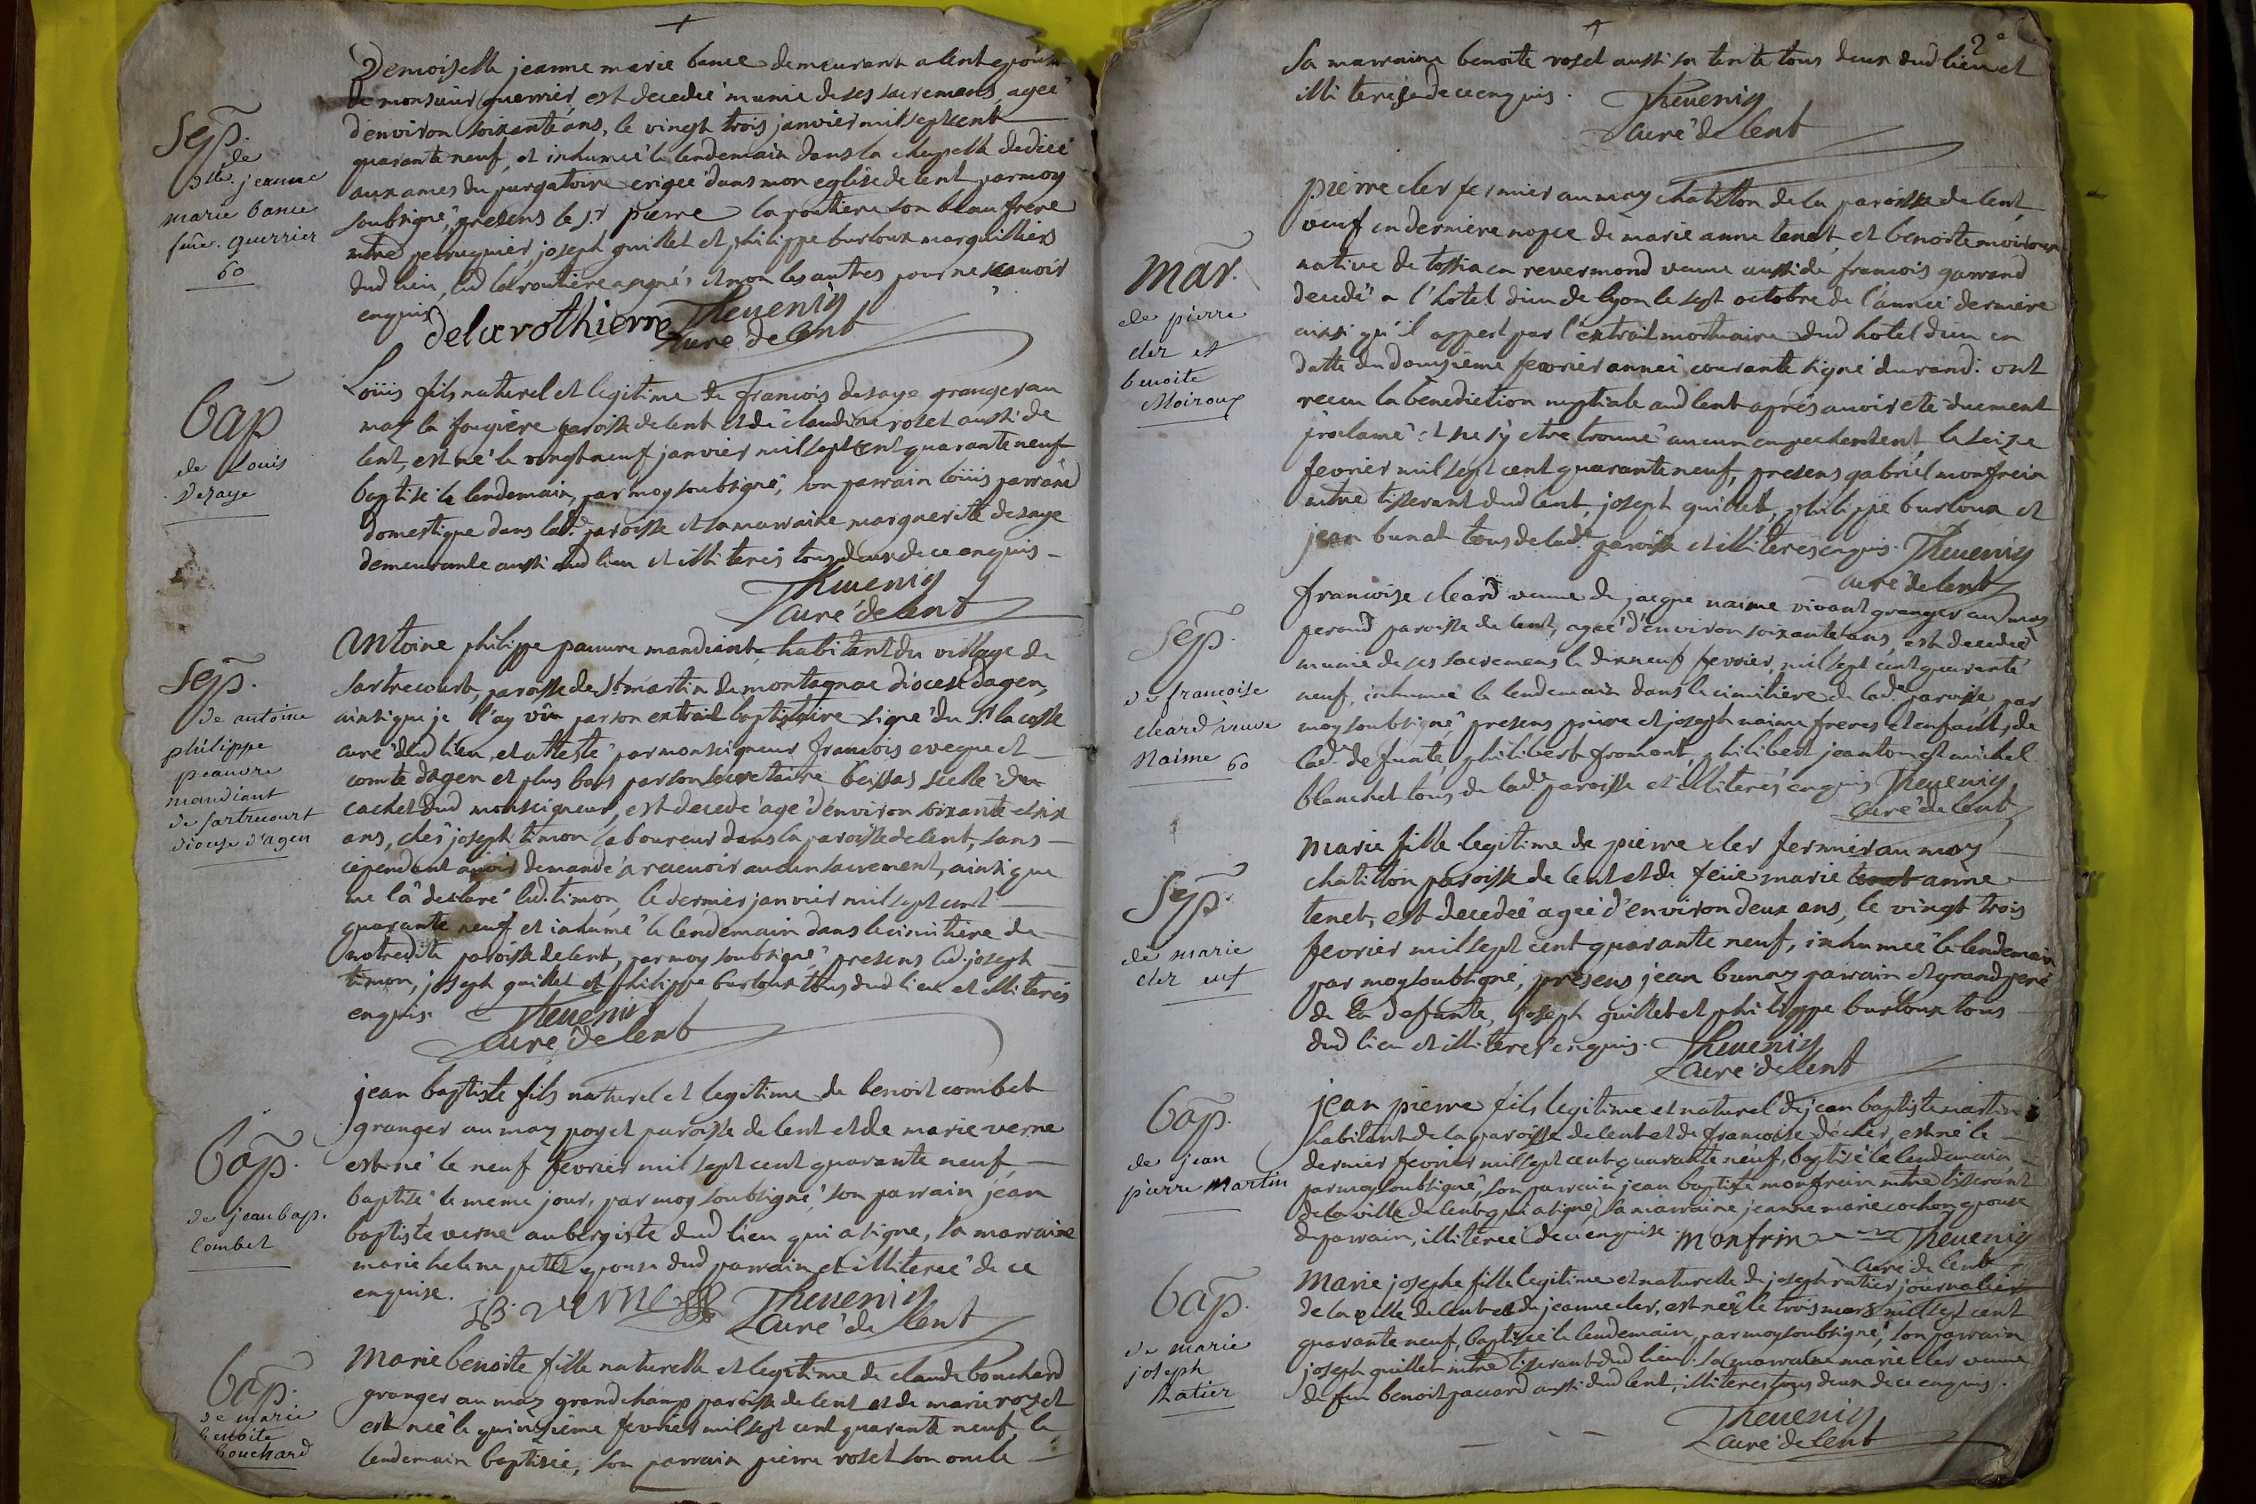 Demoiselle jeanne marie bance demeurant a lent epouse
de monsieur guerrier est decedeé munie de ses sacremens ageé
d'environ soixante ans, le vingt trois janvier mil sept cent
quarante neuf, et inhumeé le lendemain dans la chapelle dedieé
aux ames du purgatoire erigeé dans mon eglise de lent par moy
soubsigné, presens le sr pierre la routiere son beau frere
mtre perruquier, joseph guillet et philippe burloux marguilliers
dud lieu, led laroutiere a signé, et non les autres pour ne scavoir
enquis
delarothierre Thevenin
curé de lent
Sep.
de
Dlle. jeanne
marie bance
fme. guerrier
60
Loüis fils naturel et legitime de francois desaye granger au
maz la fougiere paroisse de lent et de claudine roset aussi de
lent, est né le vingt neuf janvier mil sept cent quarante neuf
baptisé le lendemain, par moy soubsigné, son parrain loüis parrand
domestique dans lade. paroisse et sa marraine marguerite desaye
demeurante aussi dud lieu et illiterés tous deux de ce enquis
Thevenin
curé de lent
bap
de Louis
Dezaye
Antoine philippe pauvre mandiant, habitant du village de
sartrecourt, paroisse de St martin de montagnac diocese dagen,
ainsi que je l'ay vû par son extrait baptistaire signé du Sr la coste
curé dud lieu, et attesté par monseigneur francois eveque et
comte dagen et plus bas par son secretaire beissas scellé du
cachet dud monseigneur, est decedé agé d'environ soixante et six
ans, ches joseph timon laboureur dans la paroisse de lent, sans
cependant avoir demandé a recevoir aucun sacrement, ainsi que
me l'a declaré led. timon, le dernier janvier mil sept cent
quarante neuf et inhumé le lendemain dans le cimitiere de
notredite paroisse de lent, par moy soubsigné, presens led. joseph
timon, joseph guillet et philippe burloux tous dud lieu et illiterés
enquis.
Thevenin
curé de lent
Sep.
de antoine
philippe
peauvre
mandiant
de sartrecourt
diocese d'agen
jean baptiste fils naturel et legitime de benoit combet
granger au maz poyet paroisse de lent et de marie verne
est né le neuf fevrier mil sept cent quarante neuf,
baptisé le meme jour, par moy soubsigné, son parrain jean
baptiste verne aubergiste dud lieu qui a signé, sa marraine
marie helene petit epouse dud parrain et illitereé de ce
enquise.
JB. verne Thevenin
curé de lent
Bap.
de jean bap.
Combet
Marie benoite fille naturelle et legitime de claude bouchard
granger au maz grandchamp paroisse de lent et de marie rozet
est neé le quinzieme fevrier mil sept cent quarante neuf, le
lendemain baptiseé, son parrain pierre roset son oncle
Bap.
de marie
benoite
bouchard
2e
sa marraine benoite roset aussi sa tente tous deux dud lieu et
illiterés de ce enquis.
Thevenin
curé de lent
pierre cler fermier au maz chatillon de la paroisse de lent,
veuf en derniere nopce de marie anne tenet, et benoite moiroux
native de tossia en revermond veuve aussi de francois garrand
decedé a l'hotel dieu de lyon le sept octobre de l'anneé derniere
ainsi qu'il appert par l'extrait mortuaire dud hotel dieu en
datte du douzieme fevrier anneé courante signé durand: ont
receu la benediction nuptiale aud lent aprés avoir eté duement
proclamé et ne s'y etre trouvé aucun empechement, le seize
fevrier mil sept cent quarante neuf, presens gabriel monfrein
mtre tisserant dud lent, joseph guillet, philippe burloux et
jean bunat tous de lade. paroisse et illiterés enquis. Thevenin
curé de lent
mar.
de pierre
cler et
benoite
Moiroux
francoise cleard veuve de jacque naime vivant granger au maz
perond paroisse de lent, ageé d'environ soixante ans, est decedeé
munie de ses sacremens le dixneuf fevrier, mil sept cent quarante
neuf, inhumeé le lendemain dans le cimitiere de lade. paroisse, par
moy soubsigné, presens pierre et joseph naime freres et enfants de
lade. defunte, philibert fromont, philibert jeanton et michel
blanchet tous de lade. paroisse et illiterés enquis Thevenin
curé de lent
Sep.
de francoise
cleard veuve
Naime 60
Marie fille legitime de pierre cler fermier au maz
chatillon paroisse de lent et de feüe marie anne
tenet, est decedeé ageé d'environ deux ans, le vingt trois
fevrier mil sept cent quarante neuf, inhumeé le lendemain
par moy soubsigné, presens jean bunaz parrain et grand pere
de la defunte, joseph guillet et philippe burloux tous
dud lieu et illiterés enquis. Thevenin
curé de lent
Sep.
de marie
cler
jean pierre fils legitime et naturel de jean baptiste martin
habitant de la paroisse de lent et de francoise decher, est né le
dernier fevrier mil sept cent quarante neuf, baptisé le lendemain
par moy soubsigné, son parrain jean baptiste monfrein mtre tiserant
de la ville de lent qui a signé, sa marraine jeanne marie cochon epouse
du parrain, illitereé de ce enquise. monfrin Thevenin
curé de lent
bap.
de jean
pierre Martin
Marie josephe fille legitime et naturelle de joseph ratier journalier
de la ville de lent et de jeanne cler, est neé le trois mars mil sept cent
quarante neuf, baptiseé le lendemain, par moy soubsigné, son parrain
joseph guillet mtre tisserant dud lieu, sa marraine marie cler veuve
de feu benoit paccard aussi dud lent, illiterés tous deux de ce enquis.
Thevenin
curé de lent
bap.
de marie
joseph
Ratier